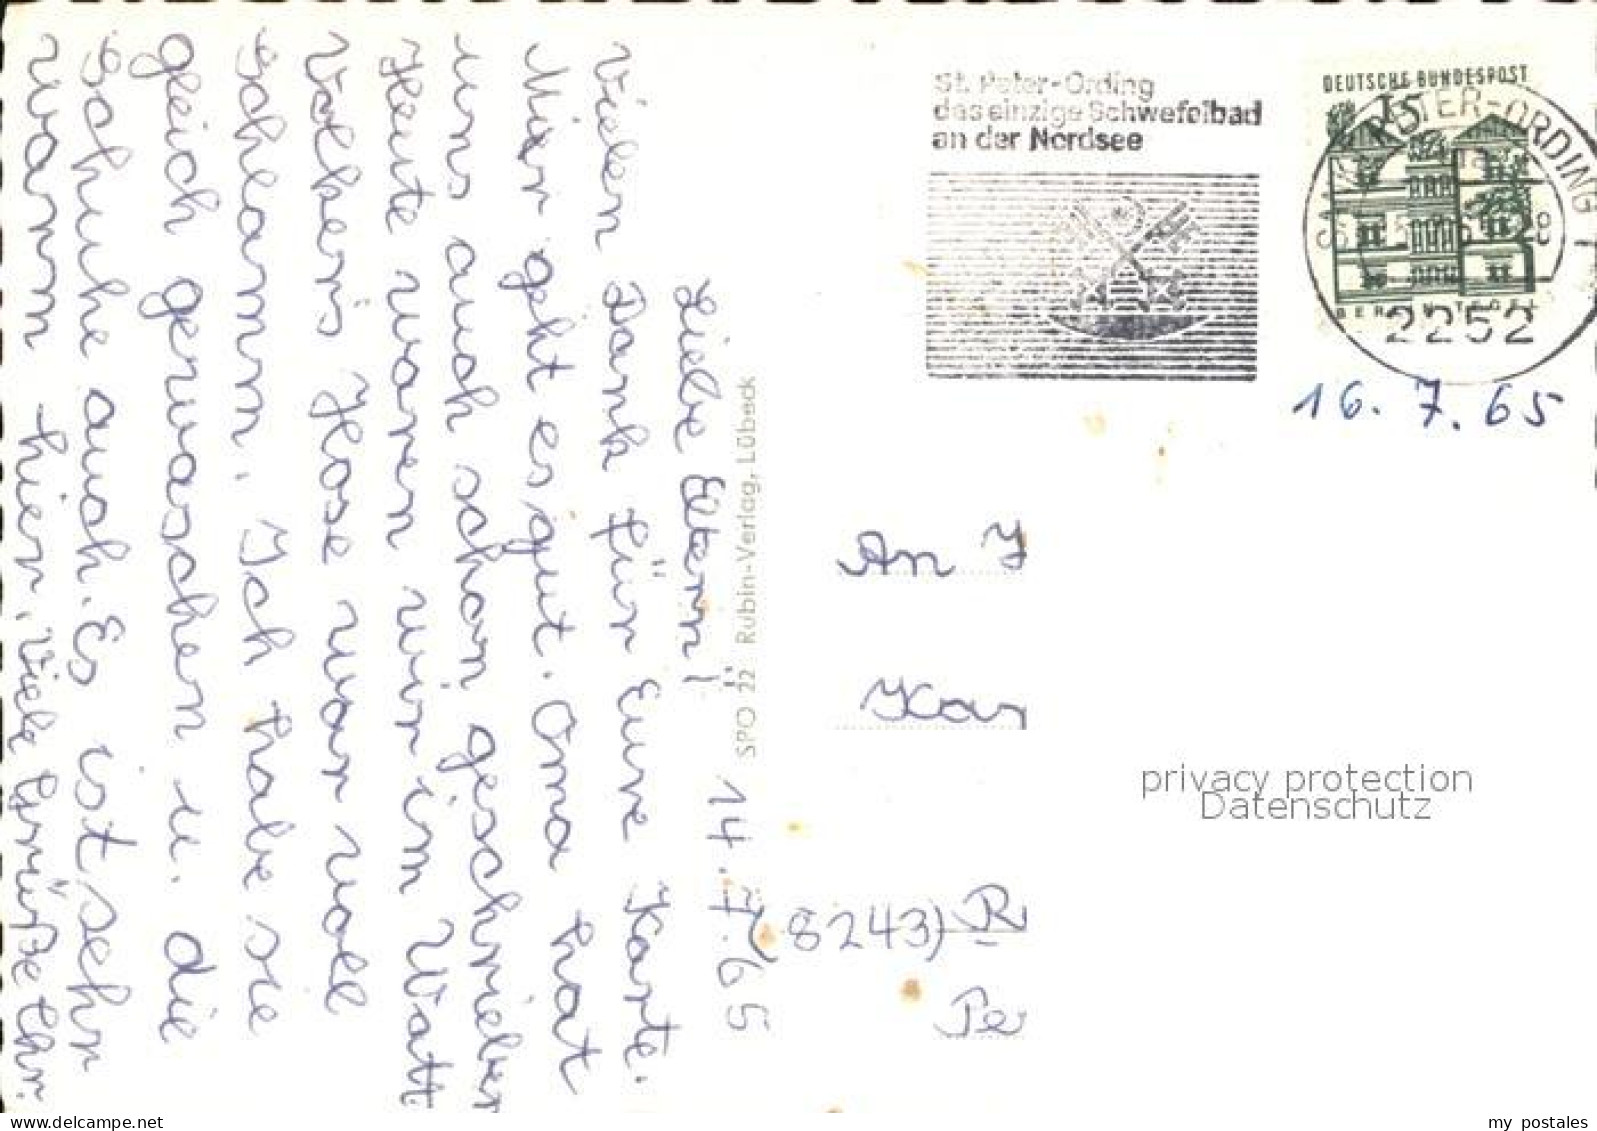 14.7.65
Liebe Eltern!
Vielen Dank für Eure Karte.
Mir geht es gut. Oma hat
uns auch schon geschrieben
Heute waren wir im Watt.
Volkers Hose war voll
Schlamm. Ich habe sie
gleich gewaschen u. die
Schuhe auch. Es ist sehr
warm hier. Viele Grüße Ihr.
SPO 22 Rubin-Verlag, Lübeck
St. Peter-Ording
das einzige Schwefelbad
an der Nordsee
DEUTSCHE BUNDESPOST
15
SANKT PETER-ORDING 1
2252
16.7.65
An
Kar
(8243) R
Pe
privacy protection
Datenschutz
delcampe.net
my_postales